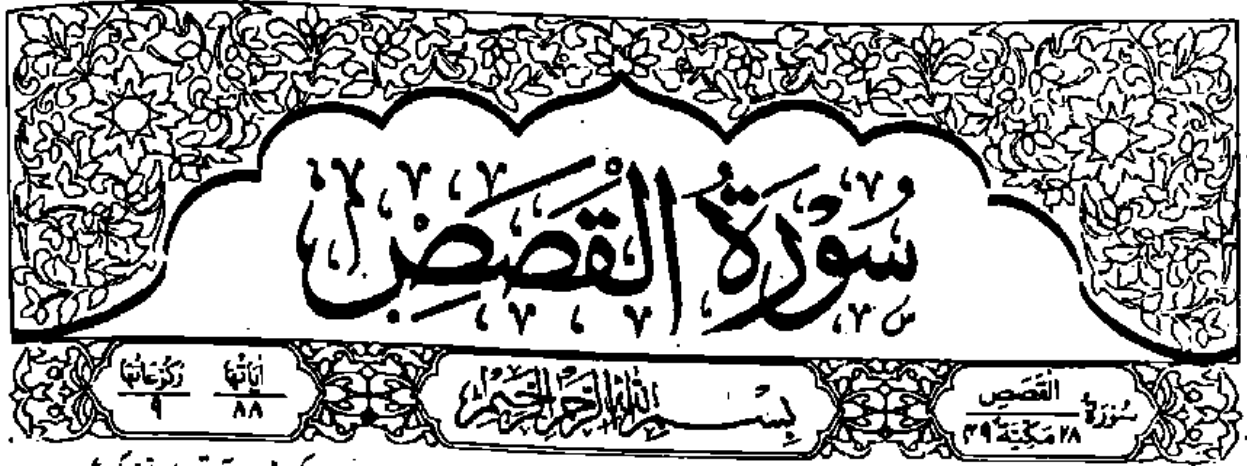 سُوْرَةُ الْقَصَصِ
سُوْرَةُ الْقَصَصِ ٢٨ مَكِّيَّةٌ ٤٩
بِسْمِ اللهِ الرَّحْمٰنِ الرَّحِيْمِ
اٰيَاتُهَا ٨٨
رُكُوْعَاتُهَا ٩